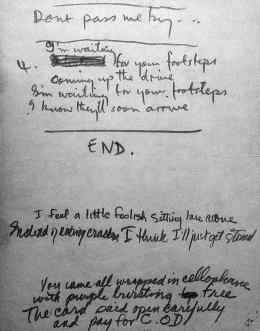 Dont pass me by...
I'm waiting
4. for your footsteps
coming up the drive
I'm waiting for your footsteps
I know they'll soon arrive
END.
I feel a little foolish sitting here alone
Instead of eating crackers I think I'll just get stoned
You came all wrapped in cellophane
with purple burating tree
The card said open carefully
and pay for C.O.D.